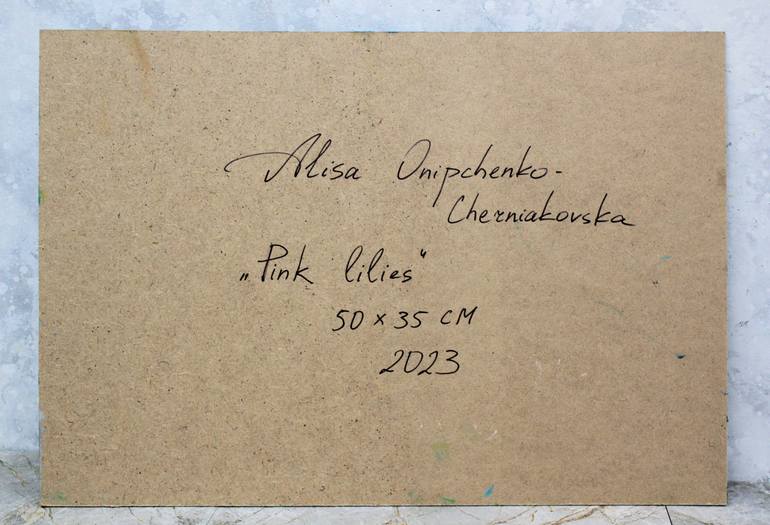 Alisa Onipchenko-
Cherniakovska
„Pink lilies“
50 x 35 CM
2023